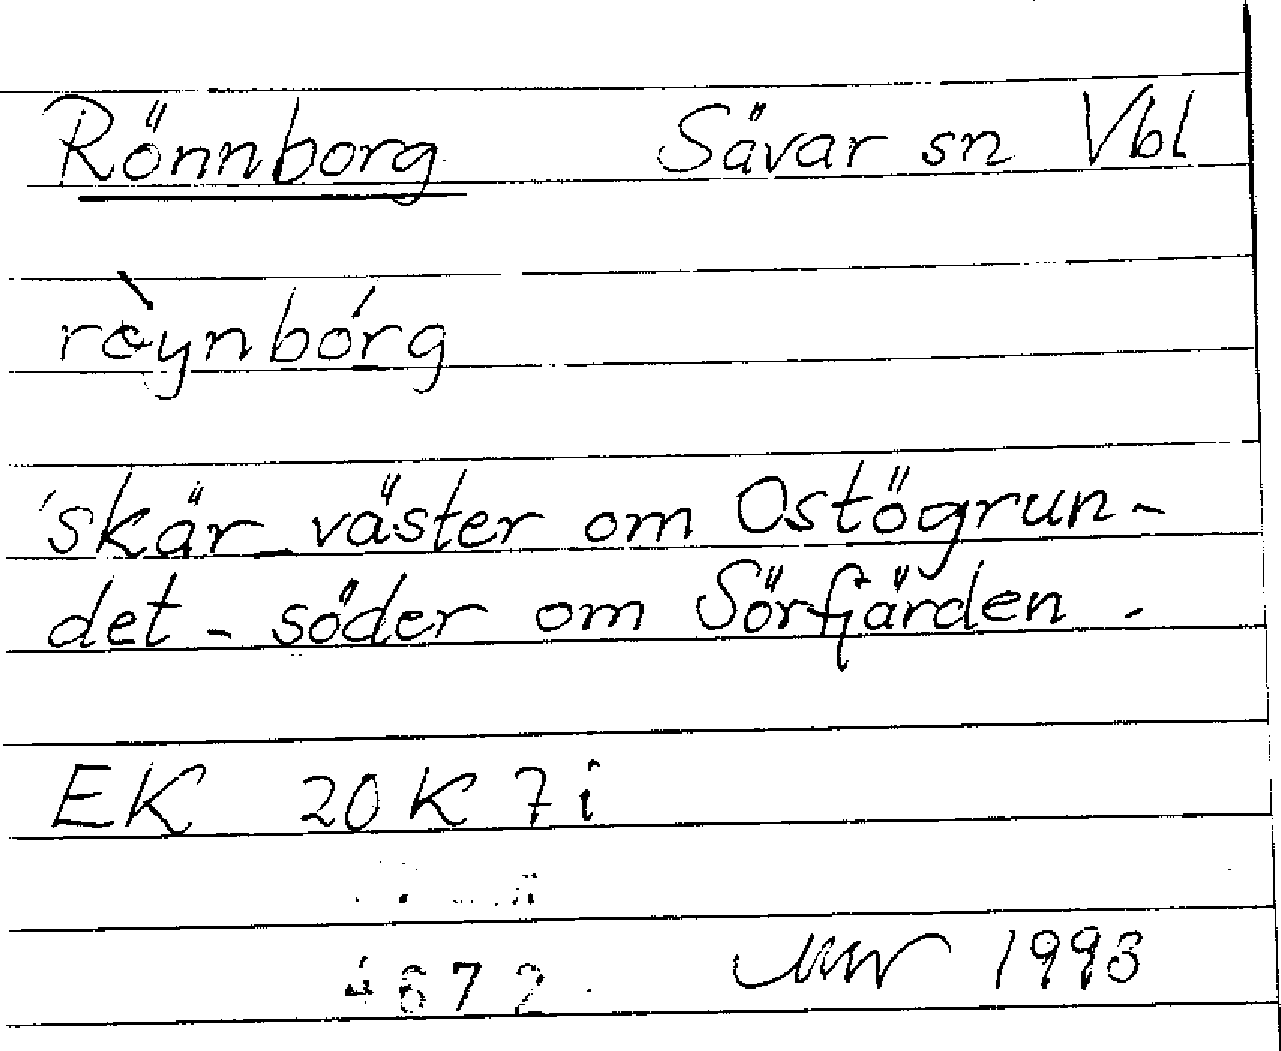 Rönnborg Sävar sn Vbl
rèynbórg
'skär väster om Ostögrun-
det - söder om Sörfjärden.
EK 20K 7i
4672 1993